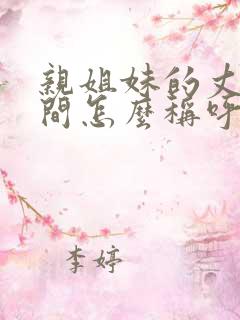 親姐妹的丈
間怎麼稱呼
李婷